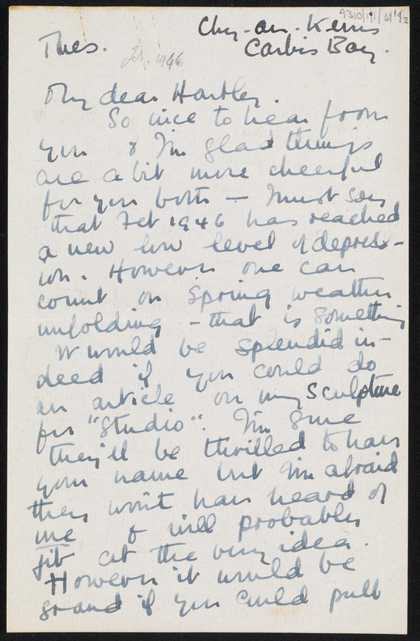 Chy-an-Kerris
Carbis Bay.
Tues.
Feb. 1946
My dear Hartley.
So nice to hear from
you & I'm glad things
are a bit more cheerful
for you both — I must say
that Feb 1946 has reached
a new low level of depress-
ion. However one can
count on Spring weather
unfolding - that is something
It would be splendid in-
deed if you could do
an article on my Sculpture
for "Studio". I'm sure
they'll be thrilled to have
your name but I'm afraid
they won't have heard of
me & will probably
fit at the very idea.
However it would be
grand if you could pull